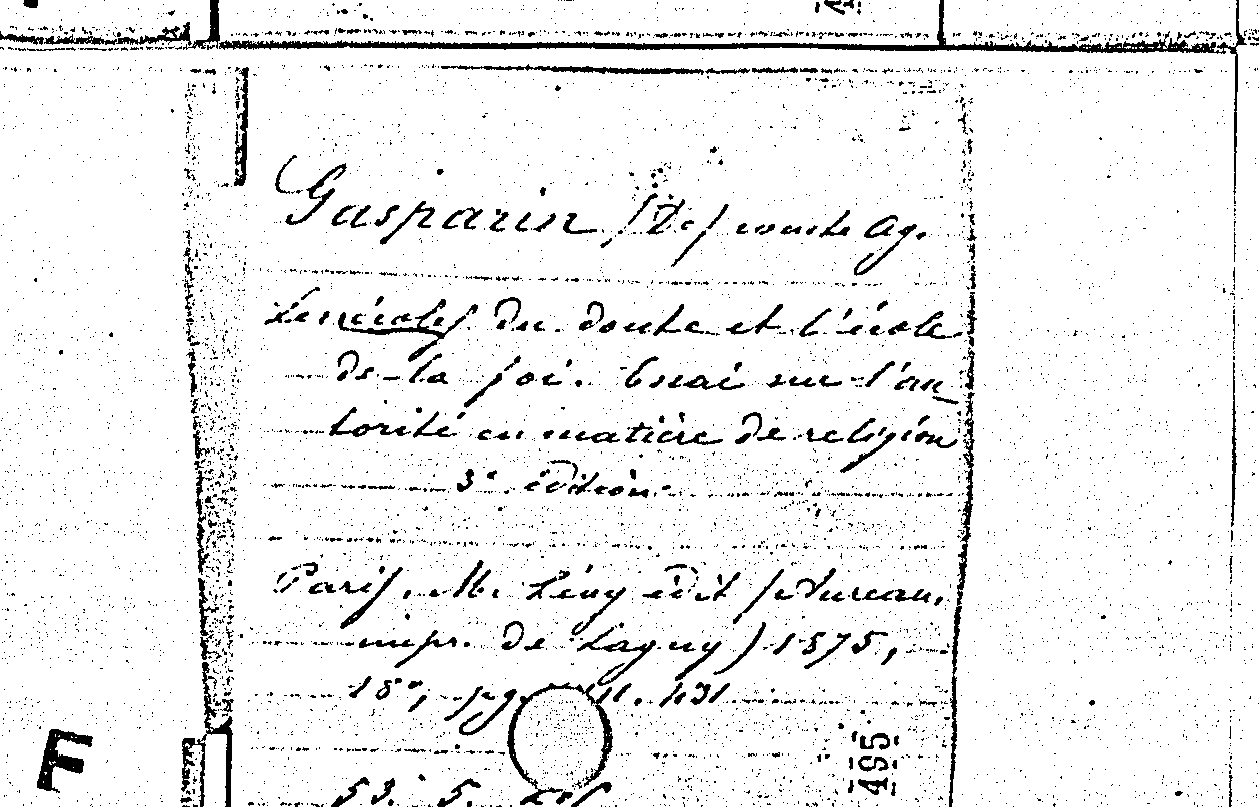 Gasparin (De) comte Ag.
Les écoles du doute et l'école
de la foi. Essai sur l'au_
torité en matière de religion
3e édition.
Paris, M. Lévy édit (Aureau,
impr. de Lagny) 1875,
18°, pg. 431
495
F
53. 5.